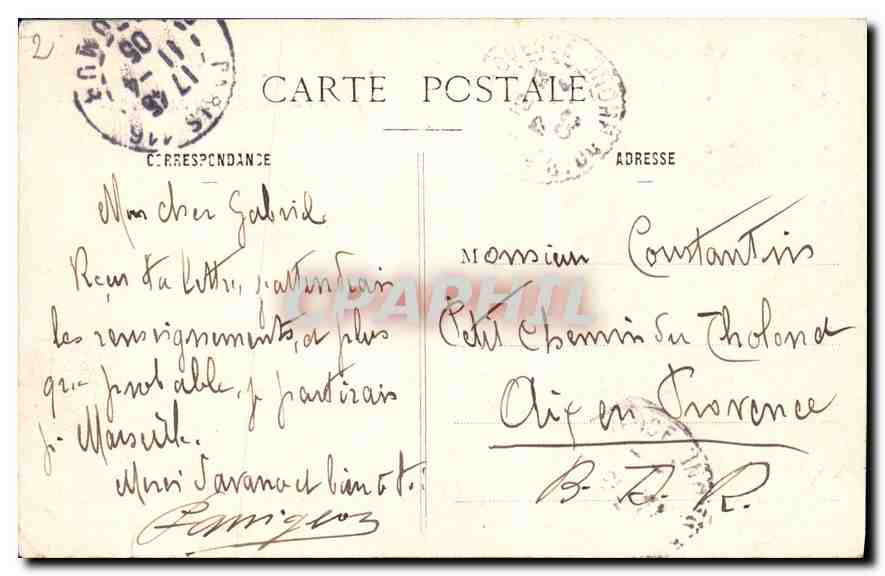 2
PARIS 116
17 45
11 14
05
CARTE POSTALE
CORRESPONDANCE
ADRESSE
Mon cher Gabriel
Reçu ta lettre, j'attendrais
les renseignements, et plus
que probable, je partirais
p. Marseille.
Merci d'avance et bientôt.
Monsieur Constantin
Petit Chemin du Tholonet
Aix en Provence
B. D. R.
CPARHIL